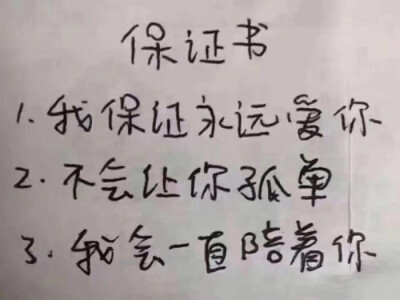 保证书
1.我保证永远爱你
2.不会让你孤单
3.我会一直陪着你